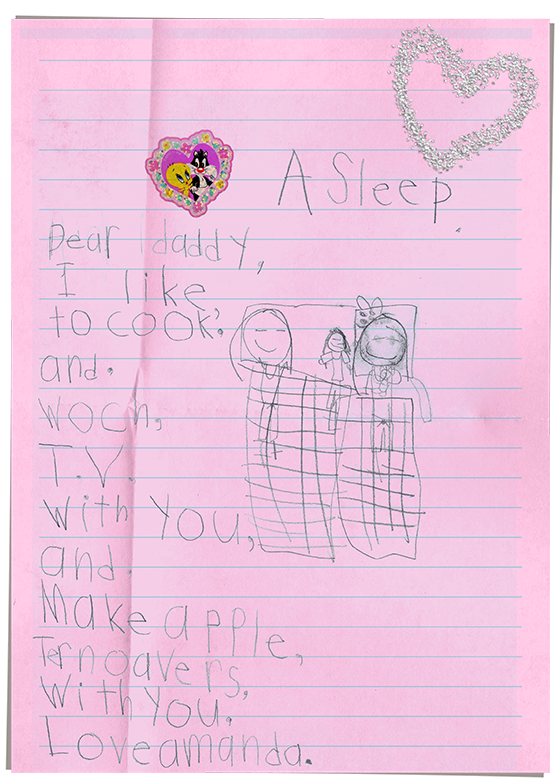 A Sleep.
Dear daddy,
I like,
to cook,
and.
woch,
T.V.
with you,
and.
Make apple,
Ternoavers,
with you.
Love amanda.